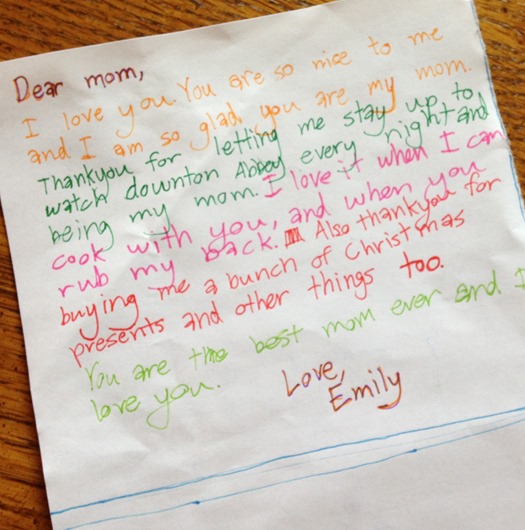 Dear mom,
I love you. You are so nice to me
and I am so glad you are my mom.
Thankyou for letting me stay up to
watch downton Abbey every night and
being my mom. I love it when I can
cook with you, and when you
rub my back. Also thankyou for
buying me a bunch of Christmas
presents and other things too.
You are the best mom ever and I
love you.
Love,
Emily